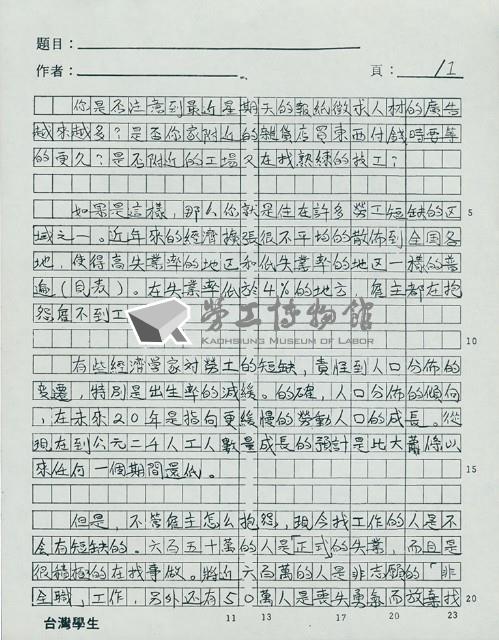 題目：
作者：
頁： /1
你是否注意到最近星期天的報紙徵求人材的廣告
越來越多？是否你家附近的雜貨店買東西付錢時要等
的更久？是否附近的工場又在找熟練的技工？
如果是這樣，那么你就是住在許多勞工短缺的区
域之一。近年來的經濟擴張很不平均的散佈到全国各
地，使得高失業率的地区和低失業率的地区一樣的普
遍（目表）。在失業率低於4%的地方，雇主都在抱
怨雇不到工
勞工博物館
KAOHSIUNG MUSEUM OF LABOR
有些經濟學家对勞工的短缺，責怪到人口分佈的
变遷，特別是出生率的減緩。的確，人口分佈的傾向
，在未來20年是指向更緩慢的勞動人口的成長。從
現在到公元二千人工人數量成長的預計是比大蕭條以
來任何一個期間還低。
但是，不管雇主怎么抱怨，現今找工作的人是不
会有短缺的。六百五十萬的人是「正式」的失業，而且是
很積極的在找事做。將近六百萬的人是非志願的「非
全職」工作，另外还有50萬人是喪失勇氣而放棄找
台灣學生
5
10
15
20
11 13 17 20 23